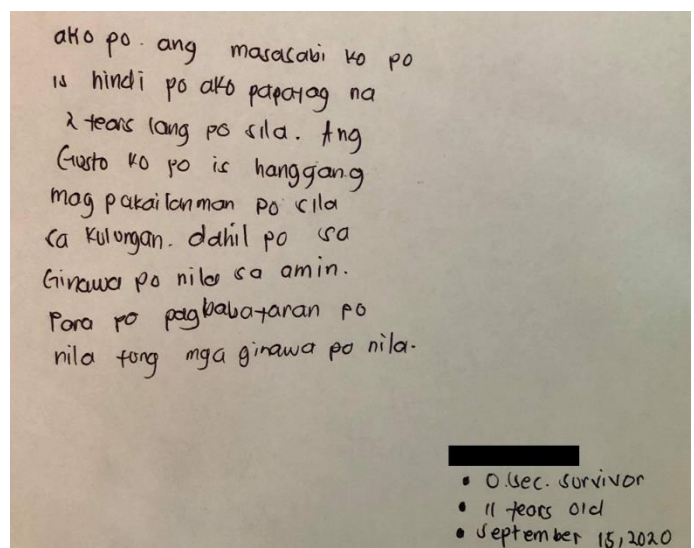 ako po. ang masasabi ko po
is hindi po ako papayag na
2 years lang po sila. Ang
Gusto ko po is hanggang
mag pakailanman po sila
sa kulungan. dahil po sa
Ginawa po nila sa amin.
Para po pagbabayaran po
nila tong mga ginawa po nila.
• O.Sec. survivor
• 11 years old
• September 15, 2020